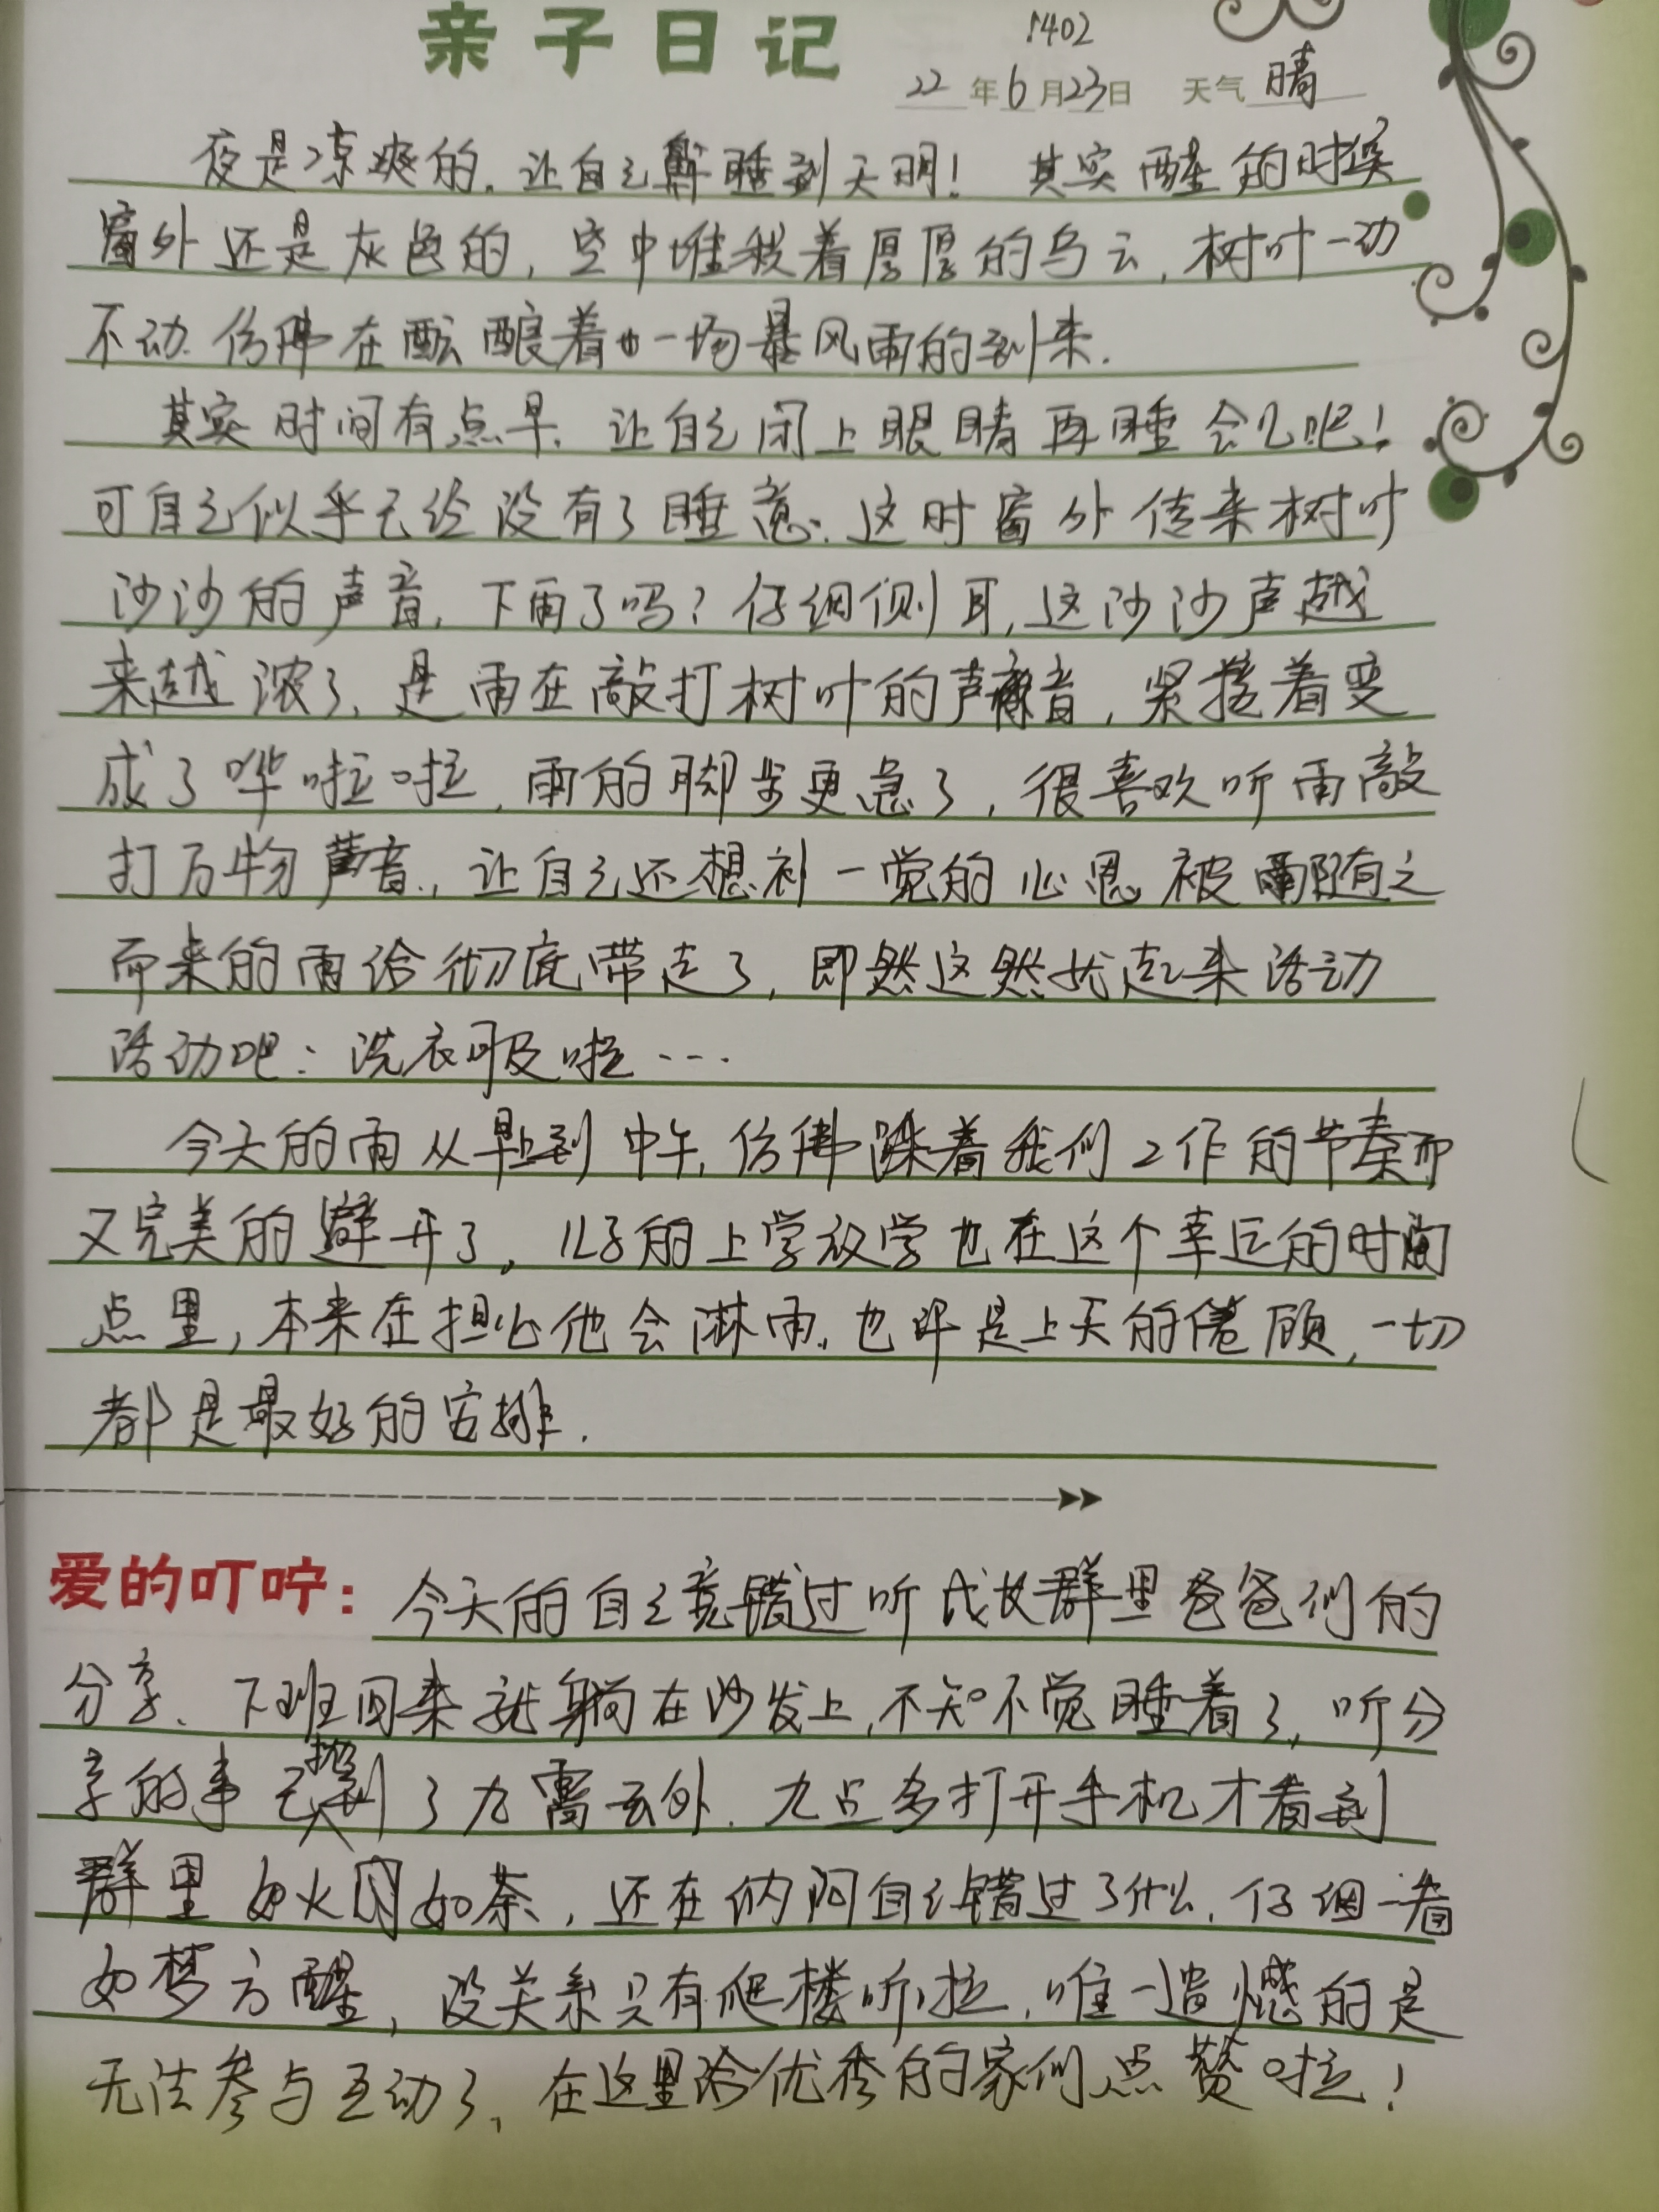 亲子日记
1402
22年6月23日 天气晴
夜是凉爽的，让自己睡到天明！其实醒的时候
窗外还是灰色的，空中堆积着厚厚的乌云，树叶一动
不动.仿佛在酝酿着一场暴风雨的到来.
其实时间有点早、让自己闭上眼睛再睡会儿吧！
可自己似乎已经没有了睡意.这时窗外传来树叶
沙沙的声音，下雨了吗？仔细侧耳，这沙沙声越
来越浓了，是雨在敲打树叶的声音，紧接着变
成了哗啦啦，雨的脚步更急了，很喜欢听雨敲
打万物声音.，让自己还想补一觉的心思被随之
而来的雨给彻底带走了，即然这然扰起来活动
活动吧：洗衣服啦…
今天的雨从早到中午，仿佛踩着我们工作的节奏而
又完美的避开了。儿子的上学放学也在这个幸运的时间
点里，本来在担心他会淋雨.也许是上天的倦顾，一切
都是最好的安排.
爱的叮咛：今天的自己竟错过听战友群里爸爸们的
分享、下班回来就躺在沙发上，不知不觉睡着了，听分
享的事已抛到了九霄云外.九点多打开手机才看到
群里如火如荼，还在纳闷自己错过了什么，仔细一看
如梦方醒，没关系只有爬楼听啦，唯一遗憾的是
无法参与互动了，在这里给优秀的家们点赞啦！